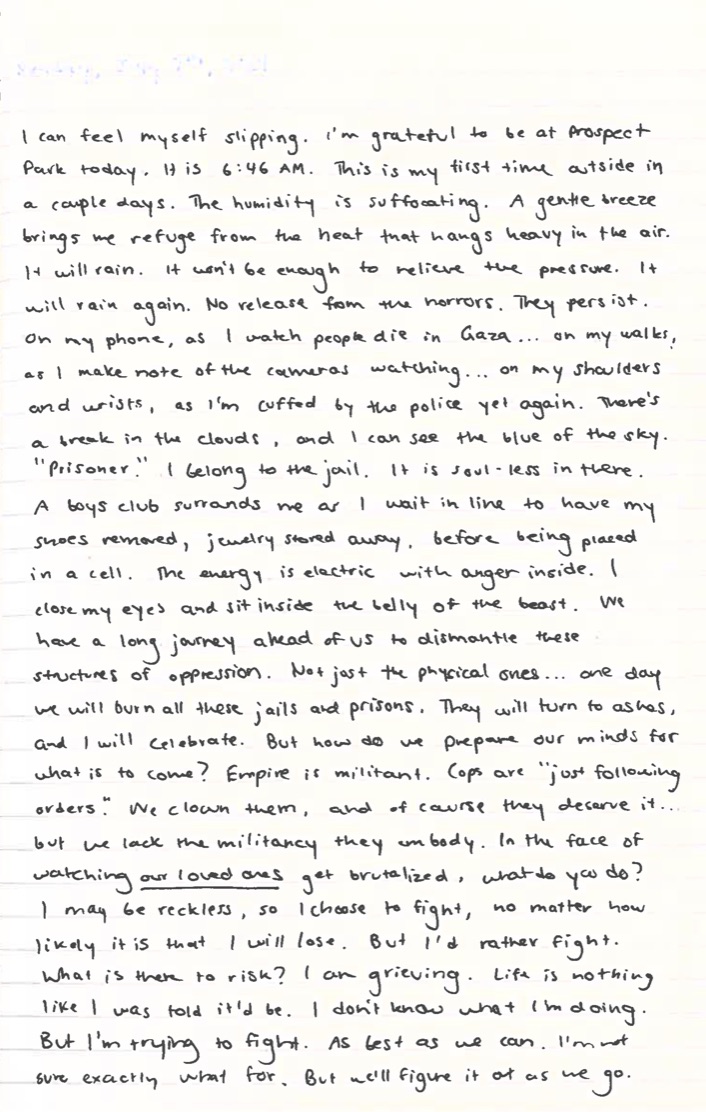 I can feel myself slipping. I'm grateful to be at Prospect
Park today. It is 6:46 AM. This is my first time outside in
a couple days. The humidity is suffocating. A gentle breeze
brings me refuge from the heat that hangs heavy in the air.
It will rain. It won't be enough to relieve the pressure. It
will rain again. No release from the horrors. They persist.
On my phone, as I watch people die in Gaza... on my walks,
as I make note of the cameras watching... on my shoulders
and wrists, as I'm cuffed by the police yet again. There's
a break in the clouds, and I can see the blue of the sky.
"Prisoner." I belong to the jail. It is soul-less in there.
A boys club surrounds me as I wait in line to have my
shoes removed, jewelry stored away, before being placed
in a cell. The energy is electric with anger inside. I
close my eyes and sit inside the belly of the beast. We
have a long journey ahead of us to dismantle these
structures of oppression. Not just the physical ones... one day
we will burn all these jails and prisons. They will turn to ashes,
and I will celebrate. But how do we prepare our minds for
what is to come? Empire is militant. Cops are "just following
orders." We clown them, and of course they deserve it...
but we lack the militancy they embody. In the face of
watching our loved ones get brutalized, what do you do?
I may be reckless, so I choose to fight, no matter how
likely it is that I will lose. But I'd rather fight.
What is there to risk? I am grieving. Life is nothing
like I was told it'd be. I don't know what I'm doing.
But I'm trying to fight. As best as we can. I'm not
sure exactly what for. But we'll figure it ot as we go.